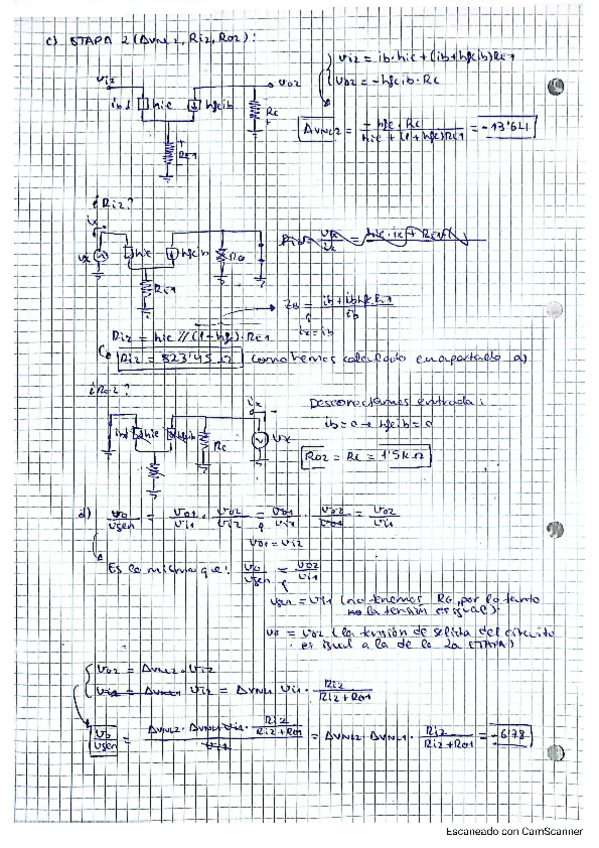 c) ETAPA 2 (AVNL2, Ri2, Ro2):
vi2 = ib·hie + (ib+hfeib)RE1
vo2 = -hfeib·Rc
vi2
vo2
ib↓ hie hfeib
Rc
RE1
AVNL2 = -hfe·Rc / hie + (1+hfe)RE1 = -13'641
¿Ri2?
ix
vx
hie
hfeib
RE1
ZB = ib+ibhfeRE1 / ib
ix = ib
Ri2 = hie // (1+hfe)·RE1
Ri2 = 823'45 Ω como hemos calculado en apartado a)
¿Ro2?
ix
hie
hfeib
Rc
vx
Desconectamos entrada:
ib=0 → hfeib=0
Ro2 = Rc = 1'5kΩ
d) vo/vgen = vo1/vi1 · vo2/vi2 = vo1/vi1 · vo2/vo1 = vo2/vi1
vo1 = vi2
Es lo mismo que: vo/vgen = vo2/vi1
vgen = vi1 (no tenemos RG, por lo tanto
la tensión es igual).
vo = vo2 (la tensión de salida del circuito
es igual a la de la 2a ETAPA)
vo2 = AVNL2·vi2
vi2 = AVNL1 vi1 · Ri2 / Ri2+Ro1
vo/vgen = AVNL2·AVNL1·vi1· Ri2/Ri2+Ro1 / vi1 = AVNL2·AVNL1· Ri2/Ri2+Ro1 = -6'78
Escaneado con CamScanner